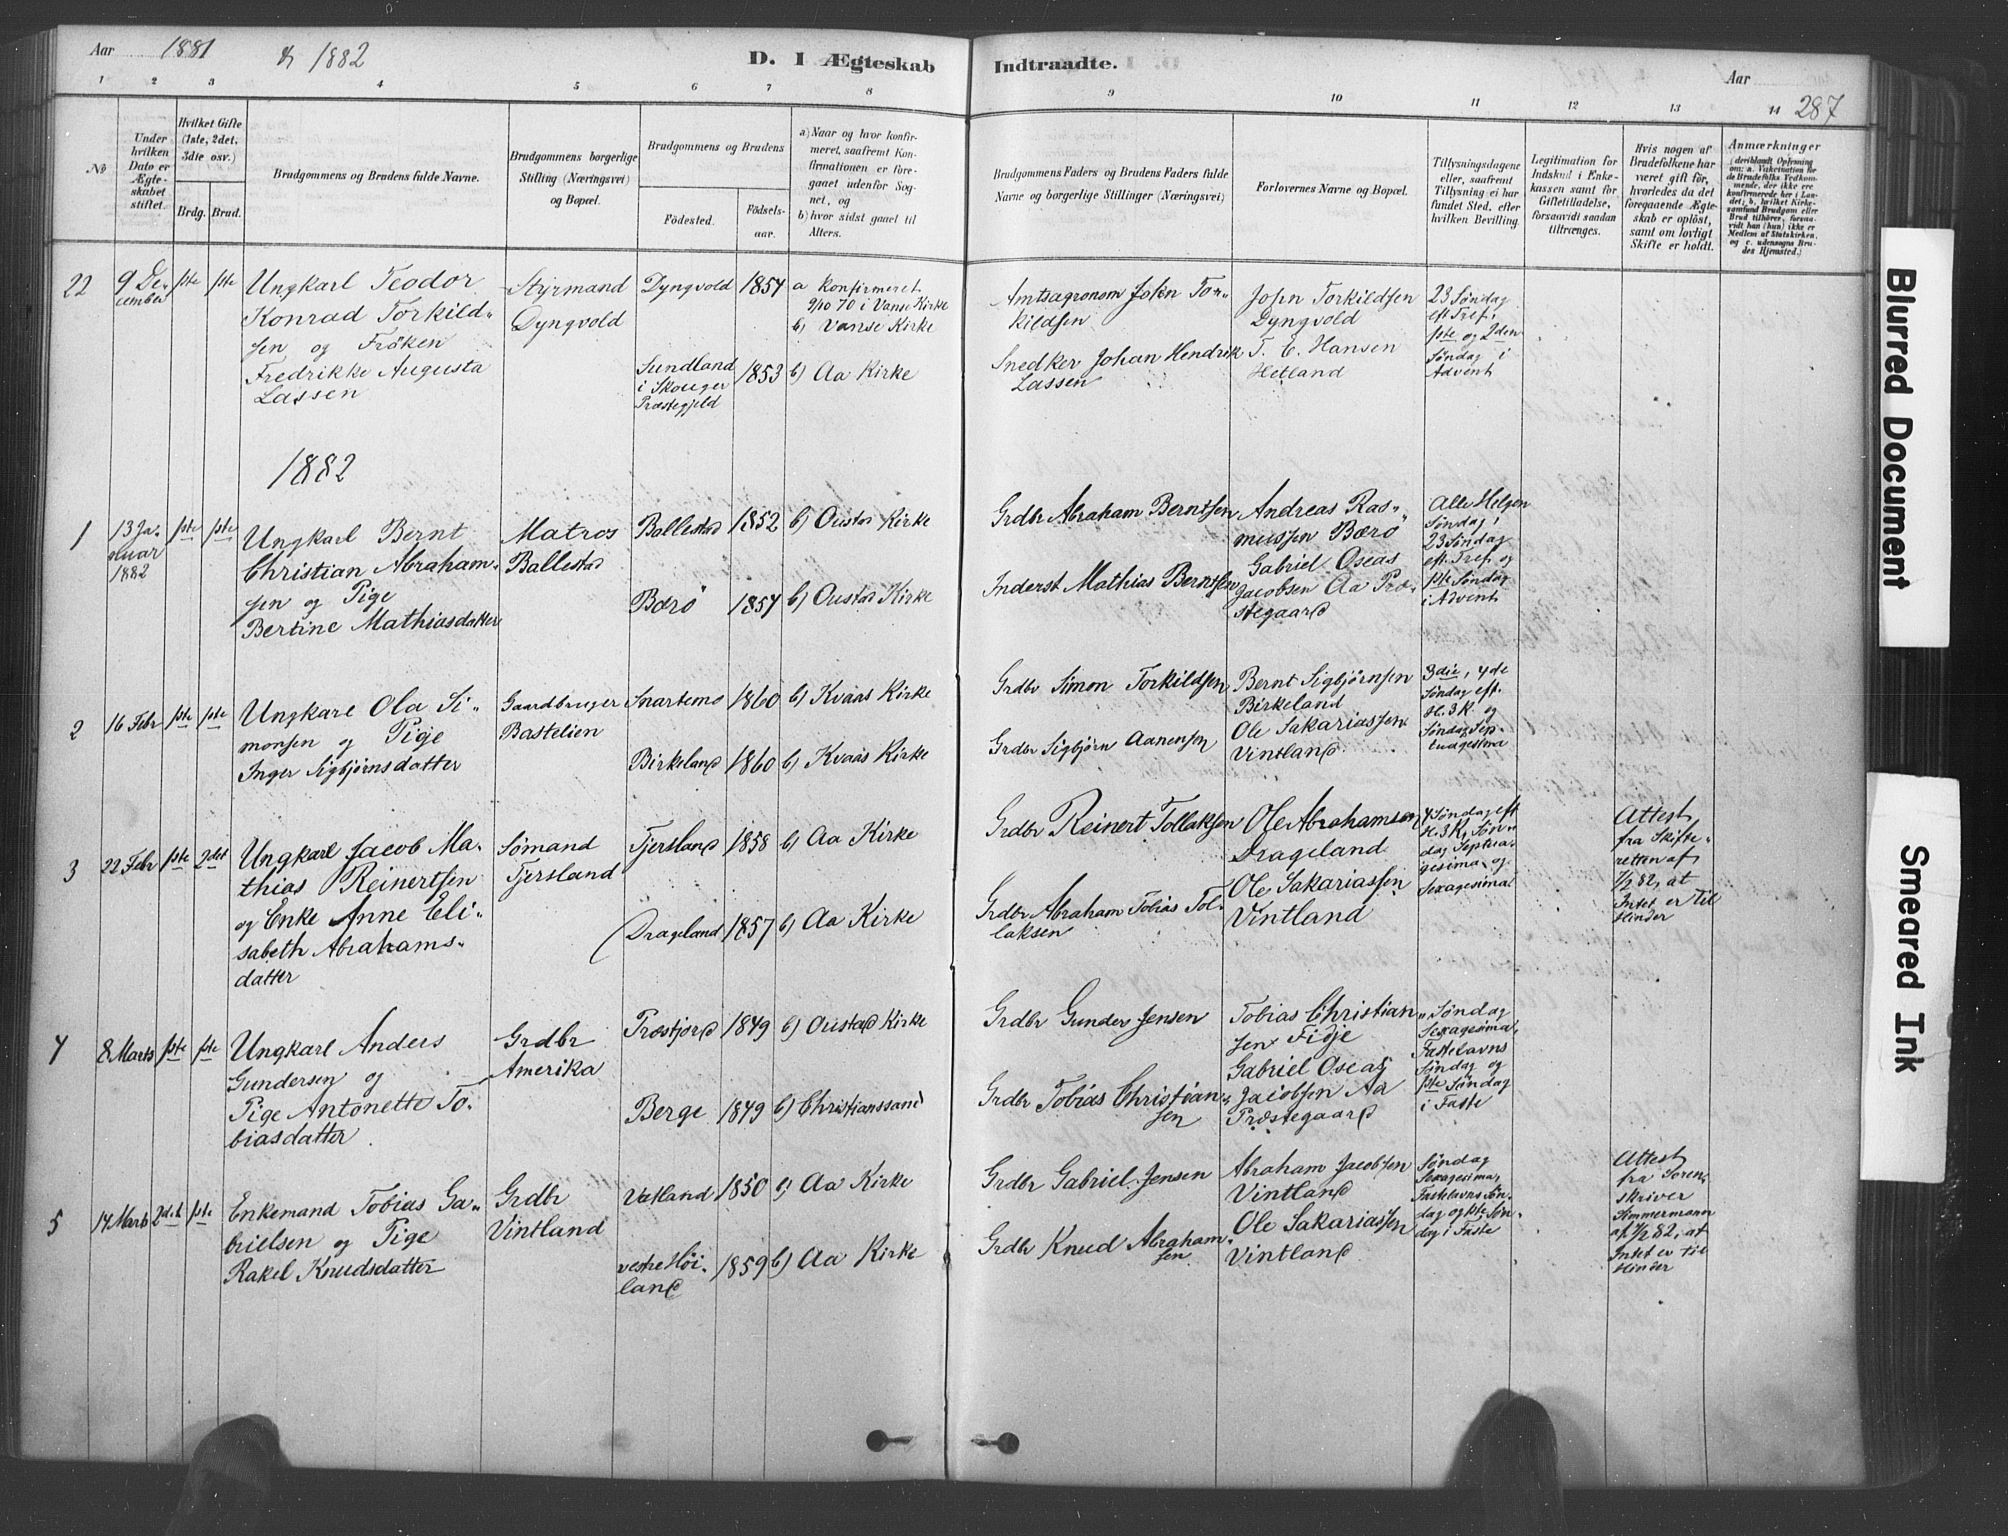 Aar 1881 & 1882
D. I Ægteskab Indtraadte.
Aar
287
1 2 3 4 5 6 7 8 9 10 11 12 13 14
No
Under hvilken Dato er Ægte-skabet stiftet.
Hvilket Gifte (1ste, 2det, 3die osv.)
Brdg. Brud.
Brudgommens og Brudens fulde Navne.
Brudgommens borgerlige Stilling (Næringsvei) og Bopæl.
Brudgommens og Brudens
Födested.
Födsels-aar.
a) Naar og hvor konfir-
meret, saafremt Kon-
firmationen er fore-
gaaet udenfor Sog-
net, og
b) hvor sidst gaaet til
Alters.
Brudgommens Faders og Brudens Faders fulde
Navne og borgerlige Stillinger (Næringsvei)
Forlovernes Navne og Bopæl.
Tillysningsdagene
eller, saafremt
Tillysning ei har
fundet Sted, efter
hvilken Bevilling.
Legitimation for
Indskud i Enke-
kassen samt for
Giftetilladelse,
forsaavidt saadan
tiltrænges.
Hvis nogen af
Brudefolkene har
været gift før,
hvorledes da det
foregaaende Ægte-
skab er oplöst,
samt om lovligt
Skifte er holdt.
Anmærkninger
22
9 De-
cember
1ste 1ste
Ungkarl Teodor
Konrad Torkild-
sen og Frøken
Fredrikke Augusta
Lassen
Styrmand
Dyngvold
Dyngvold 1854
a konfirmeret
9/10 70 i Vanse Kirke
b) Vanse Kirke
Sundland
i Skouger
Præstegjeld
1853 b) Aa Kirke
Amtsagronom John Tor-
kildsen
Snedker Johan Hendrik
Lassen
John Torkildsen
Dyngvold
T. E. Hansen
Hetland
23 Søndag
eft Tref.
1ste og 2den
Søndag i
Advent
1882
1
13 Ja-
nuar
1882
1ste 1ste
Ungkarl Bernt
Christian Abraham-
sen og Pige
Bertine Mathiasdatter
Matros
Ballestad
Ballestad 1852 b) Oustad Kirke
Bærø 1854 b) Oustad Kirke
Grdbr Abraham Berntsen
Inderst Mathias Berntsen
Andreas Ras-
mussen Bærø
Gabriel Oseas
Jacobsen Aa Præ-
stegaard
Alle Helgen
Søndag,
23 Søndag
eft. Tref. og
1ste Søndag
i Advent
2
16 Febr 1ste 1ste
Ungkarl Ola Si-
monsen og Pige
Inger Sigbjørnsdatter
Gaardbruger
Bastelien
Snartemo 1860 b) Kvaas Kirke
Birkeland 1860 b) Kvaas Kirke
Grdbr Simon Torkildsen
Grdbr Sigbjørn Aanensen
Bernt Sigbjørnsen
Birkeland
Ole Sakariassen
Vintland
3die, 4de
Søndag eft.
H. 3 K. og
Søndag Sep-
tuagesima
3
22 Febr 1ste 2det
Ungkarl Jacob Ma-
thias Reinertsen
og Enke Anne Eli-
sabeth Abrahams-
datter
Sømand
Tjersland
Tjersland 1858 b) Aa Kirke
Drageland 1857 b) Aa Kirke
Grdbr Reinert Tollaksen
Grdbr Abraham Tobias Tol-
laksen
Ole Abrahamsen
Drageland
Ole Sakariassen
Vintland
4 Søndag eft
H. 3 K, Søn-
dag Septua-
gesima og
Sexagesima
Attest
fra Skifte-
retten af
7/2 82, at
Intet er Til
Hinder
4
8 Marts 1ste 1ste
Ungkarl Anders
Gundersen og
Pige Antonette To-
biasdatter
Grdbr
Amerika
Præstjord 1849 b) Oustad Kirke
Berge 1849 b) Christianssand
Grdbr Gunder Jensen
Grdbr Tobias Christian-
sen
Tobias Christian-
sen Fidje
Gabriel Oseas
Jacobsen Aa
Præstegaard
Søndag
Sexagesima,
Fastelavns
Søndag og
1ste Søndag
i Faste
5
14 Marts 2det 1ste
Enkemand Tobias Ga-
brielsen og Pige
Rakel Knudsdatter
Grdbr
Vintland
Vatland 1850 b) Aa Kirke
vestre Høi-
land
1859 b) Aa Kirke
Grdbr Gabriel Jensen
Grdbr Knud Abraham-
sen
Abraham Jacobsen
Vintland
Ole Sakariassen
Vintland
Søndag
Sexagesima,
Fastelavns Søn-
dag og 1ste Søn-
dag i Faste
Attest
fra Soren-
skriver
Simmermann
af 4/2 82, at
Intet er til
Hinder
Blurred Document
Smeared Ink